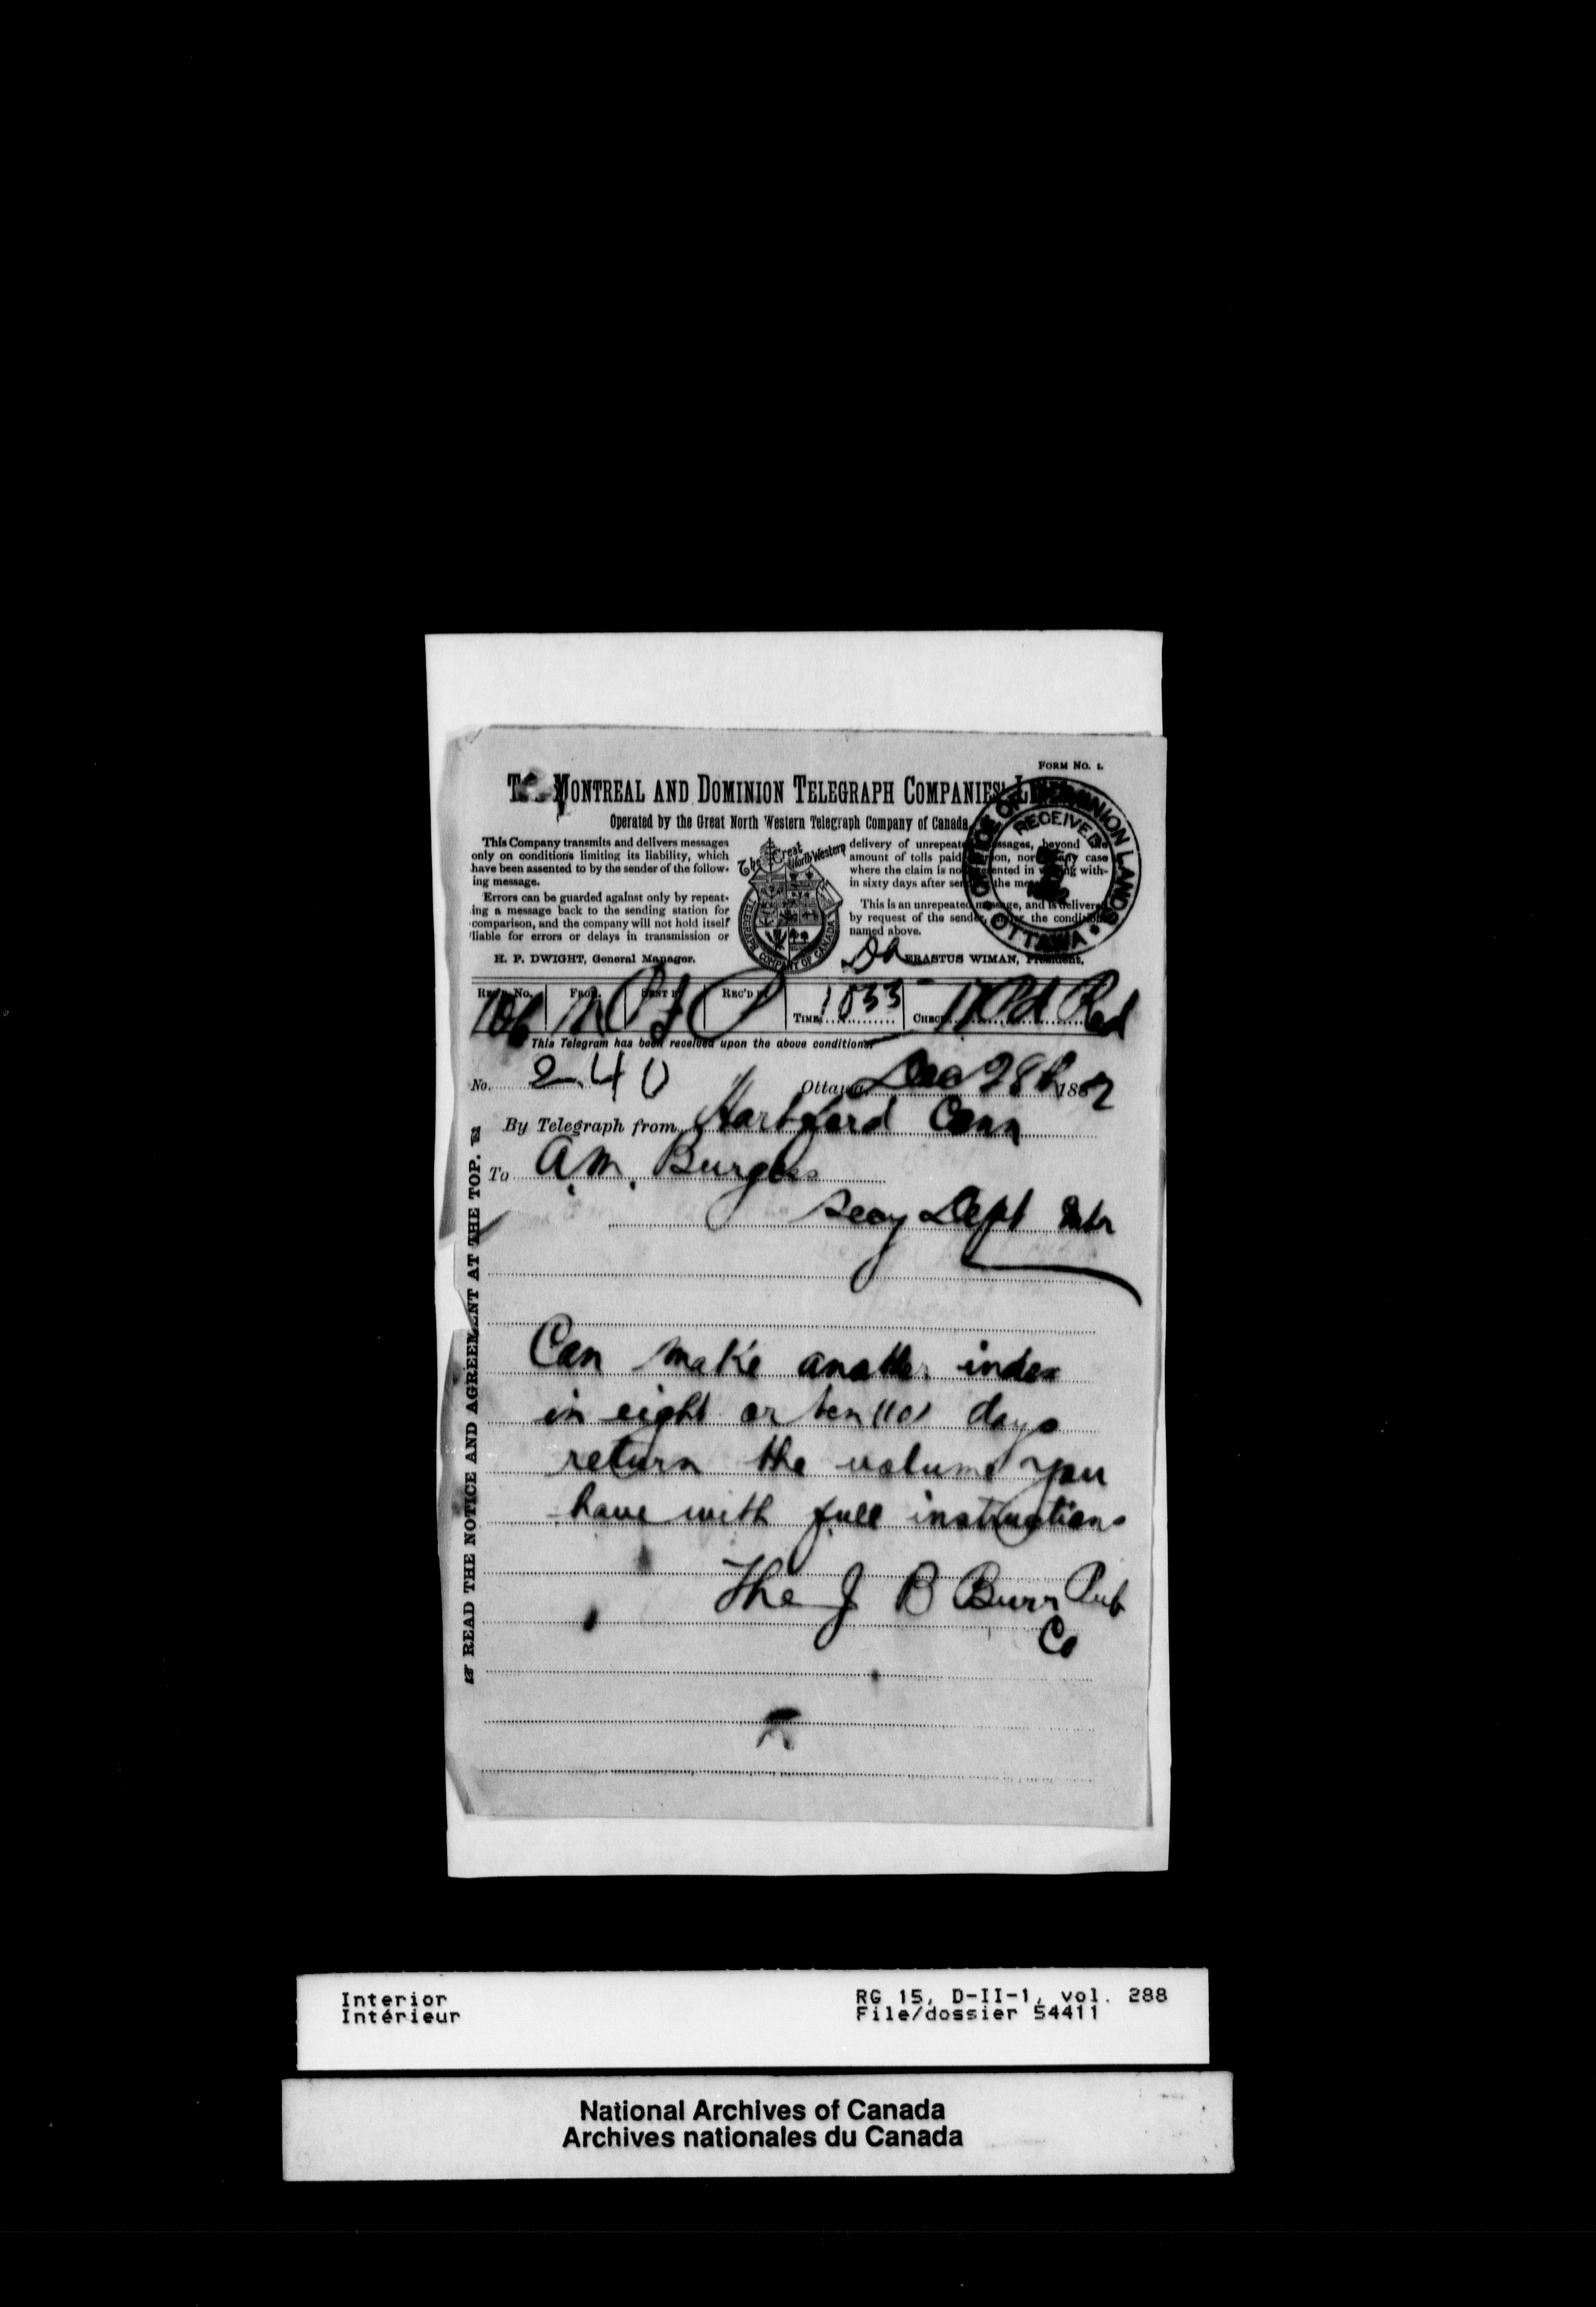 FORM No. 1.
MONTREAL AND DOMINION TELEGRAPH COMPANIES'
Operated by the Great North Western Telegraph Company of Canada
This Company transmits and delivers messages
only on conditions limiting its liability, which
have been assented to by the sender of the follow-
ing message.
Errors can be guarded against only by repeat-
ing a message back to the sending station for
comparison, and the company will not hold itself
liable for errors or delays in transmission or
H. P. DWIGHT, General Manager.
The Great North Western
TELEGRAPH COMPANY OF CANADA
delivery of unrepeated messages, beyond the
amount of tolls paid thereon, nor in any case
where the claim is not presented in writing with-
in sixty days after sending the message.
This is an unrepeated message, and is delivered
by request of the sender, under the conditions
named above.
ERASTUS WIMAN, President.
OFFICE OF DOMINION LANDS
RECEIVED
OTTAWA
Rec'd No. From. Sent by Rec'd by Time 1033 Check
This Telegram has been received upon the above conditions
No. 240 Ottawa, Dec 28th 1882
By Telegraph from Hartford Conn
To A.M. Burgess
Secy Dept Intr
READ THE NOTICE AND AGREEMENT AT THE TOP.
Can make another index
in eight or ten (10) days
return the volume you
have with full instructions
The J B Burr Pub
Co
Interior
Intérieur
RG 15, D-II-1, vol. 288
File/dossier 54411
National Archives of Canada
Archives nationales du Canada